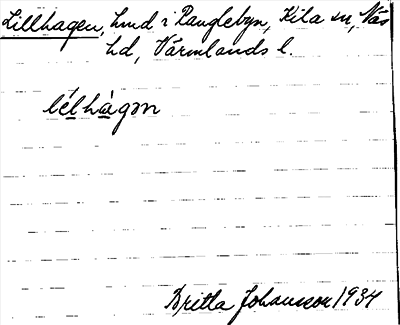 Lillhagen, hmd i Ranglebyn, Kila sn, Näs
hd, Värmlands l.
lélhàgɔn
Britta Johansson 1934